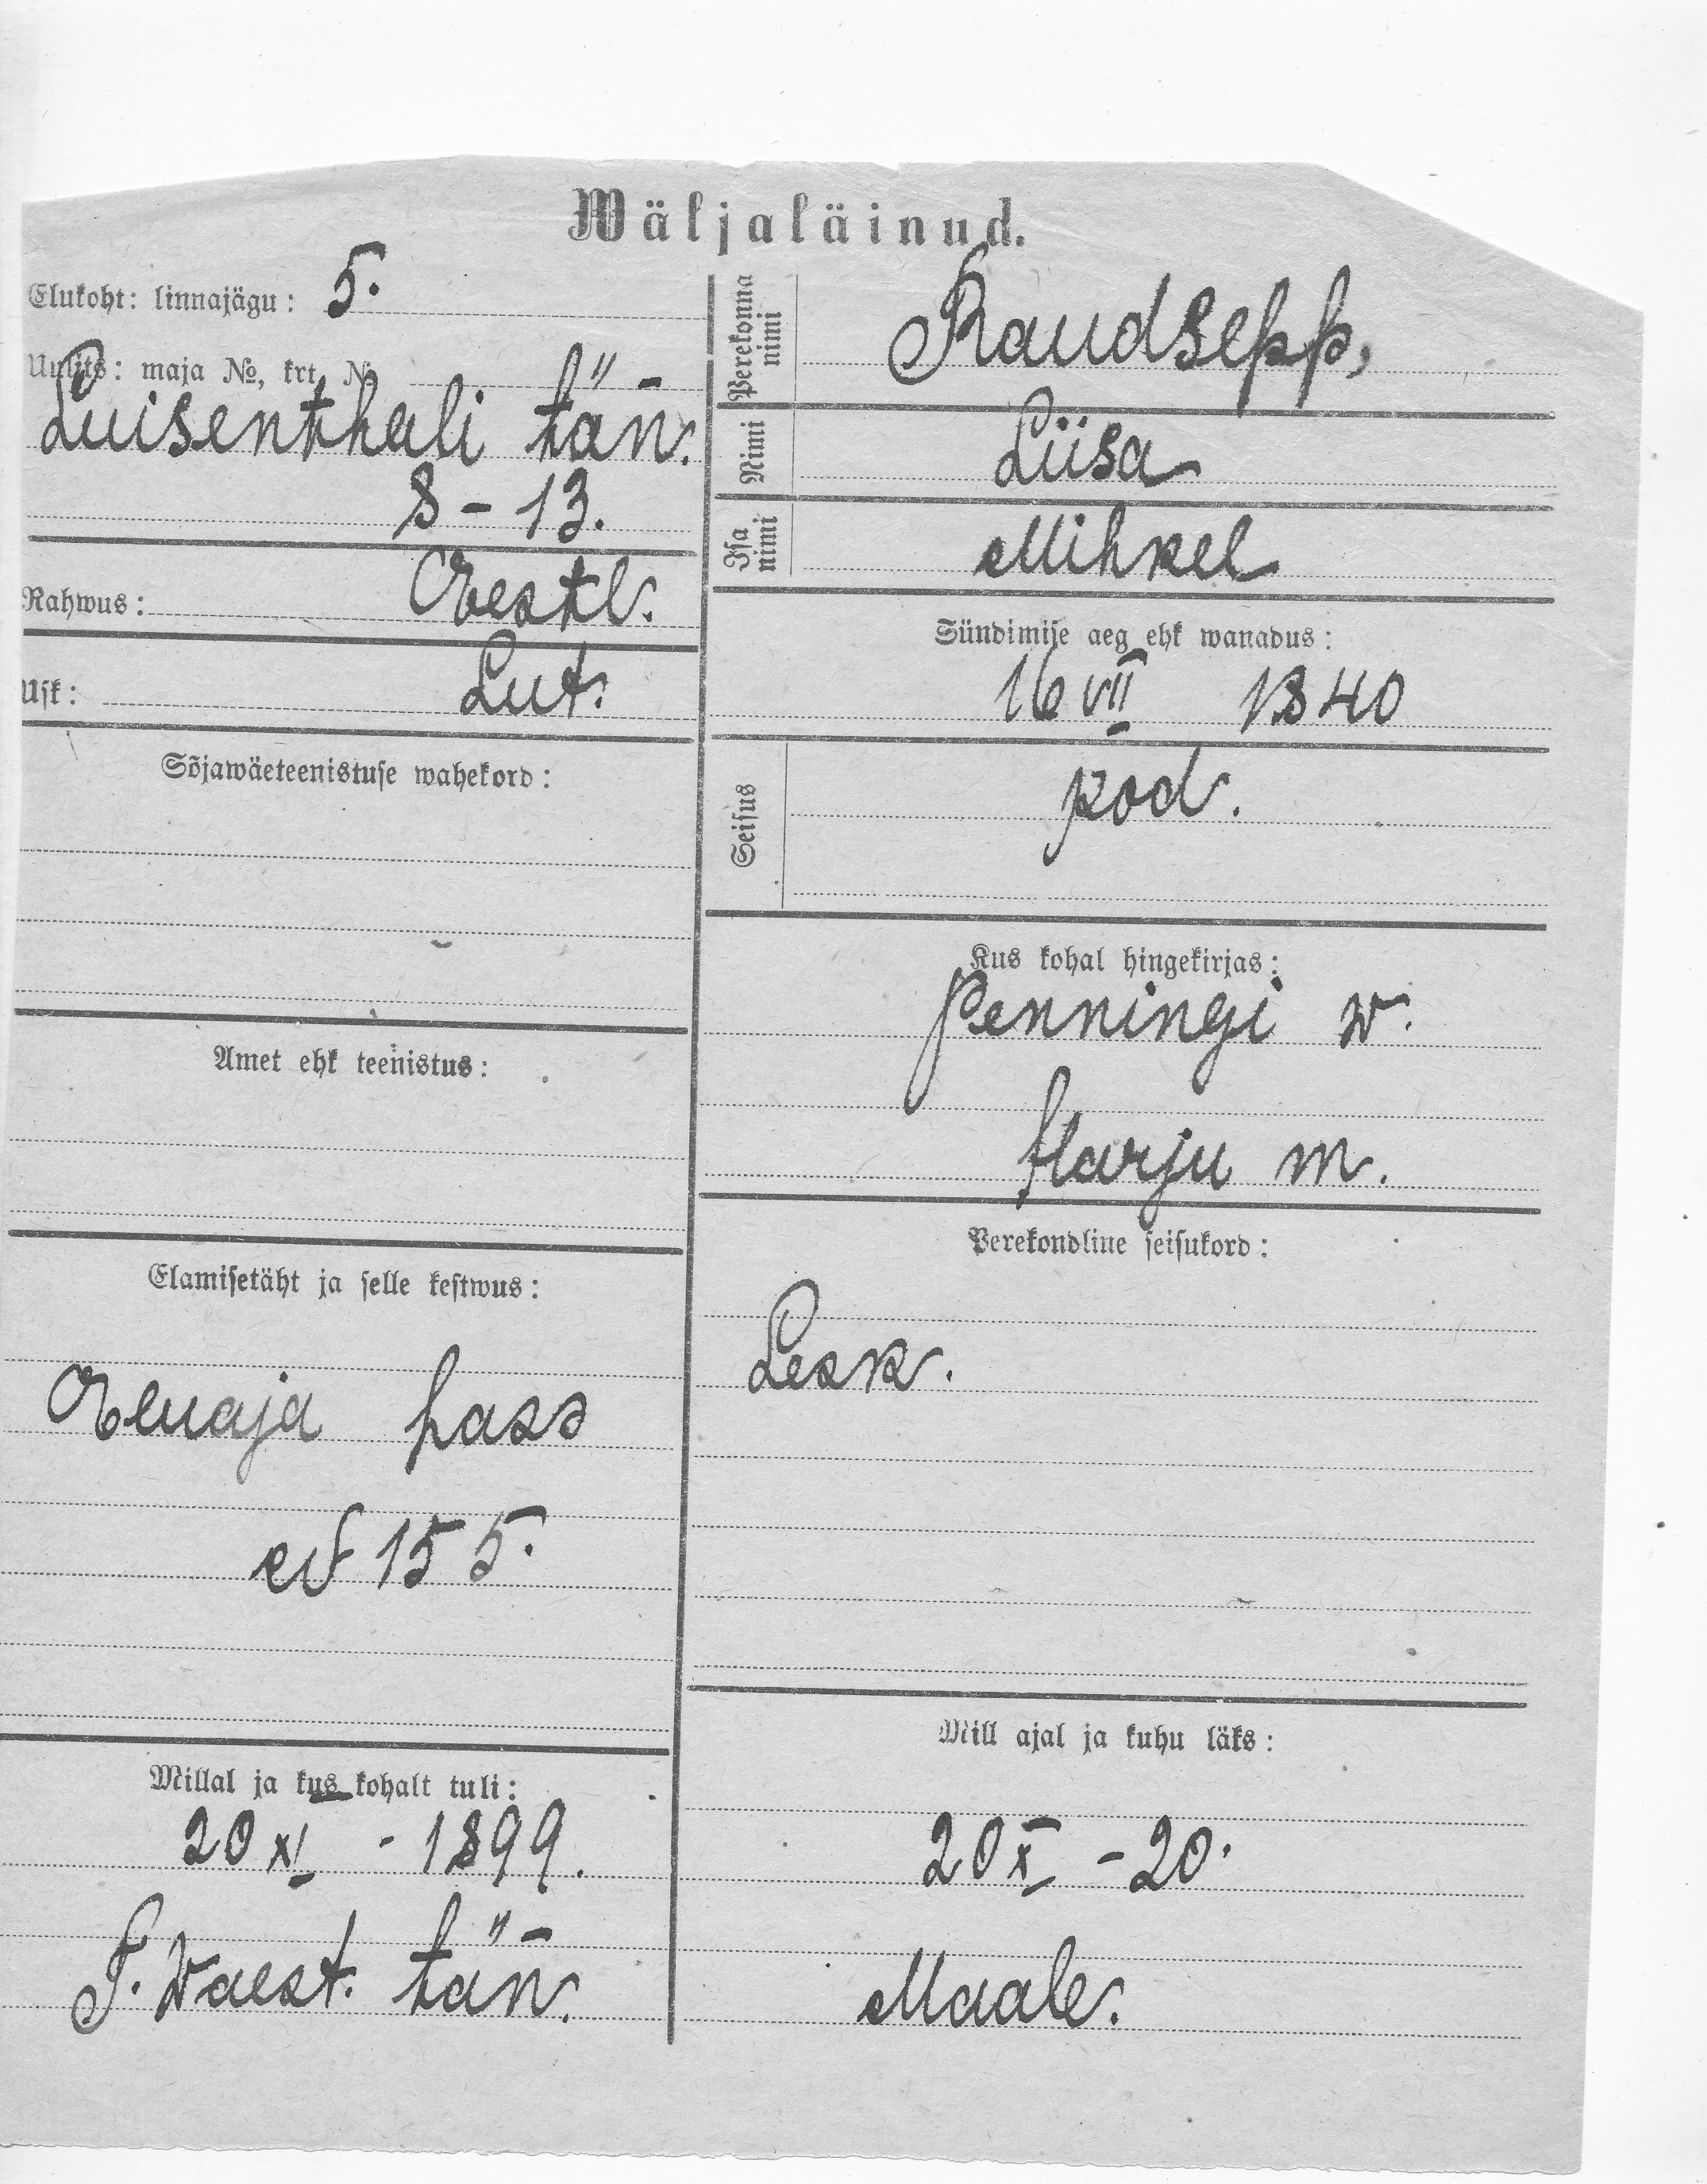 Wäljaläinud.
Elukoht: linnajägu: 5.
Uulits: maja №, krt. №
Luisenthali tän.
8 - 13.
Rahwus: Eestl.
Usk: Lut.
Sõjawäeteenistuse wahekord:
Amet ehk teenistus:
Elamisetäht ja selle kestwus:
Eluaja pass
№ 155.
Millal ja kus kohalt tuli:
20 XI - 1899.
P. Waest. tän.
Perekonna nimi Raudsepp,
Nimi Liisa
Isa nimi Mihkel
Sündimise aeg ehk wanadus:
16 VII 1840
Seisus kod.
Kus kohal hingekirjas:
Penningi w.
Harju m.
Perekondline seisukord:
Lesk.
Mill ajal ja kuhu läks:
20 X - 20.
Maale.